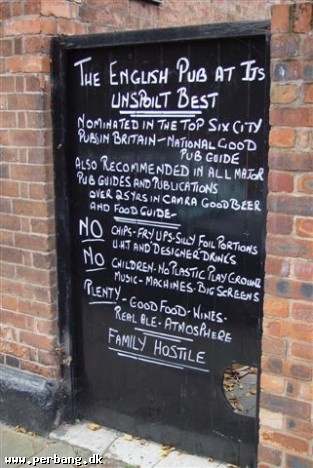 THE ENGLISH PUB AT ITS
UNSPOILT BEST
NOMINATED IN THE TOP SIX CITY
PUBS IN BRITAIN - NATIONAL GOOD
PUB GUIDE
ALSO RECOMMENDED IN ALL MAJOR
PUB GUIDES AND PUBLICATIONS
OVER 25 YRS IN CAMRA GOOD BEER
AND FOOD GUIDE-
NO CHIPS-FRY UPS-SILLY FOIL PORTIONS
U.H.T AND DESIGNER DRINKS
NO CHILDREN-NO PLASTIC PLAY GROUND
MUSIC-MACHINES-BIG SCREENS
PLENTY-GOOD FOOD-WINES-
REAL ALE-ATMOSPHERE
FAMILY HOSTILE
www.perbang.dk